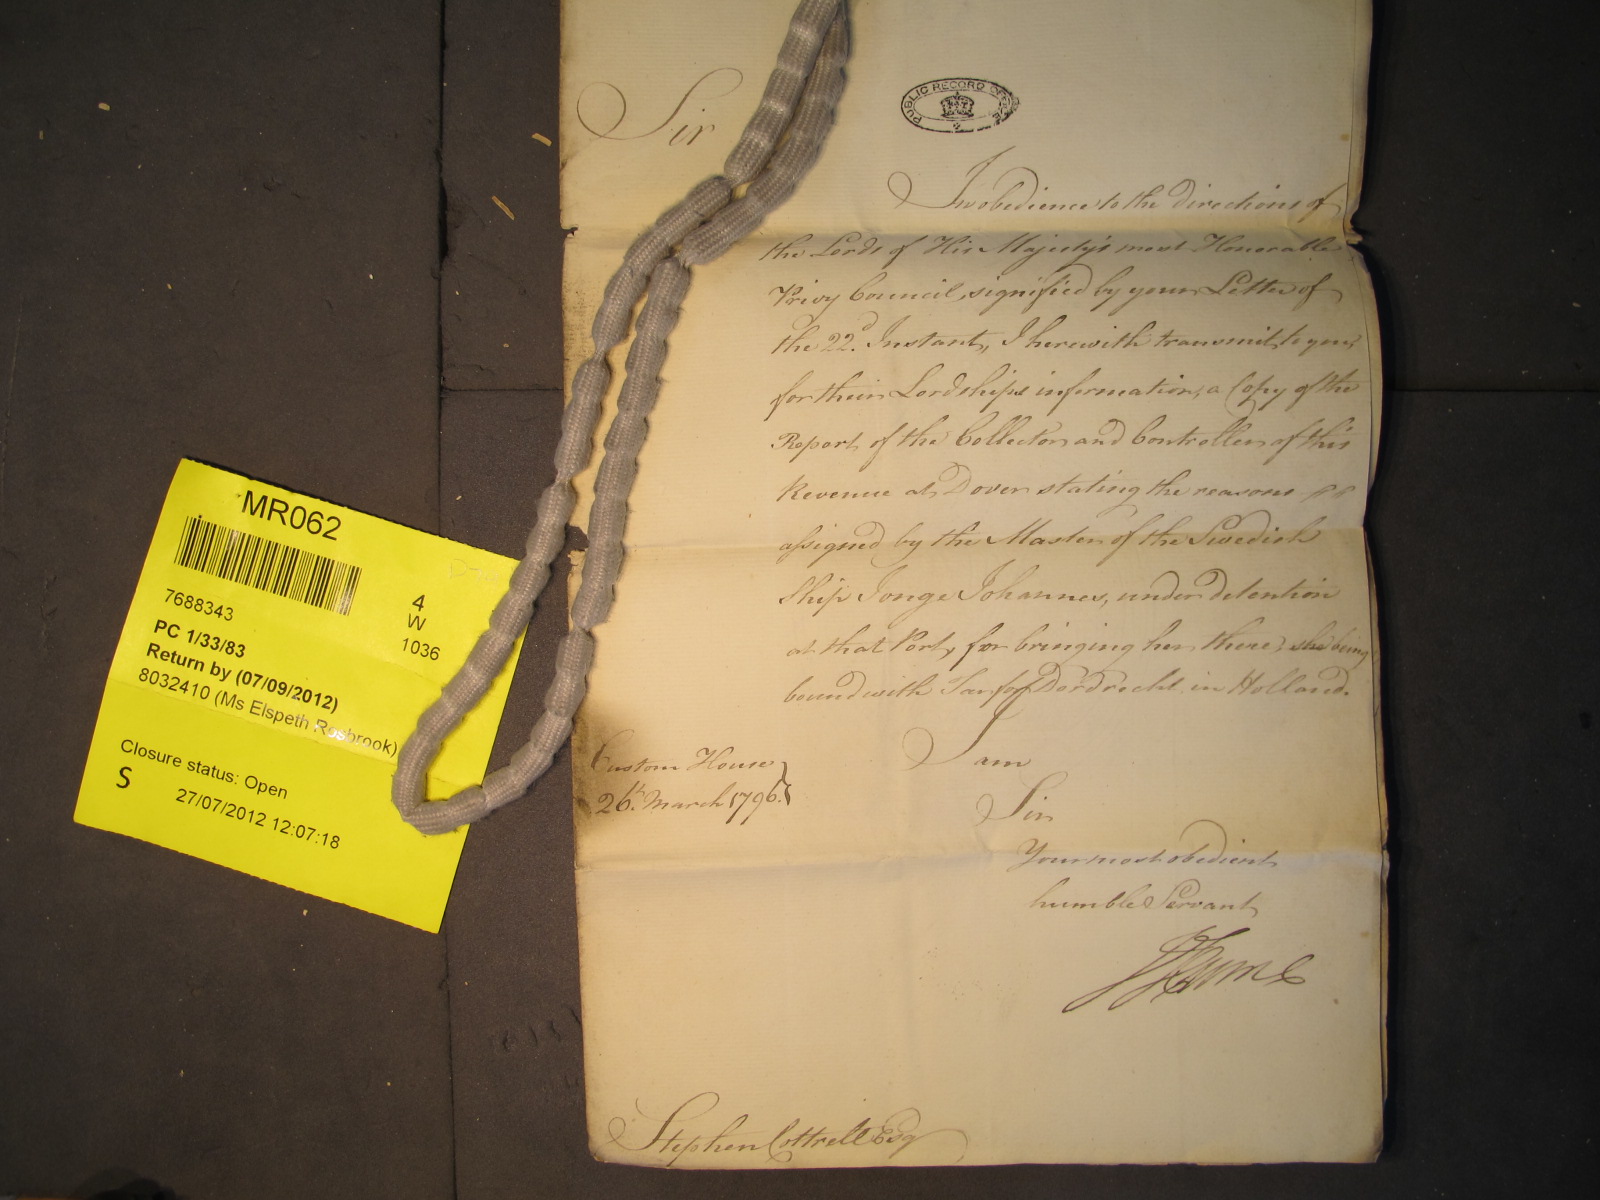 Sir
PUBLIC RECORD OFFICE
In obedience to the directions of
the Lords of His Majesty's most Honorable
Privy Council, signified by your Letter of
the 22d. Instant, I herewith transmit to you,
for their Lordships information, a Copy of the
Report of the Collector and Controller of this
Revenue at Dover stating the reasons
assigned by the Master of the Swedish
Ship Jonge Johannes, under detention
at that Port, for bringing her there, she being
bound with Tar for Dordrecht in Holland.
I am
Sir
Your most obedient
humble Servant
JHume
Custom House
26th. March 1796.
Stephen Cottrell Esq
MR062
7688343
4
W
1036
PC 1/33/83
Return by (07/09/2012)
8032410 (Ms Elspeth Rosbrook)
Closure status: Open
S
27/07/2012 12:07:18